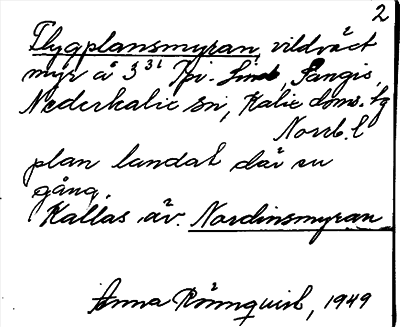 2
Flygplansmyran, vildväxt
myr å 3³¹ Kpi. Lind, Pangis,
Nederkalix sn, Kalix doms. tg
Norrb. l
plan landat där en
gång.
Kallas äv. Nordinsmyran
Anna Rönnquist, 1949